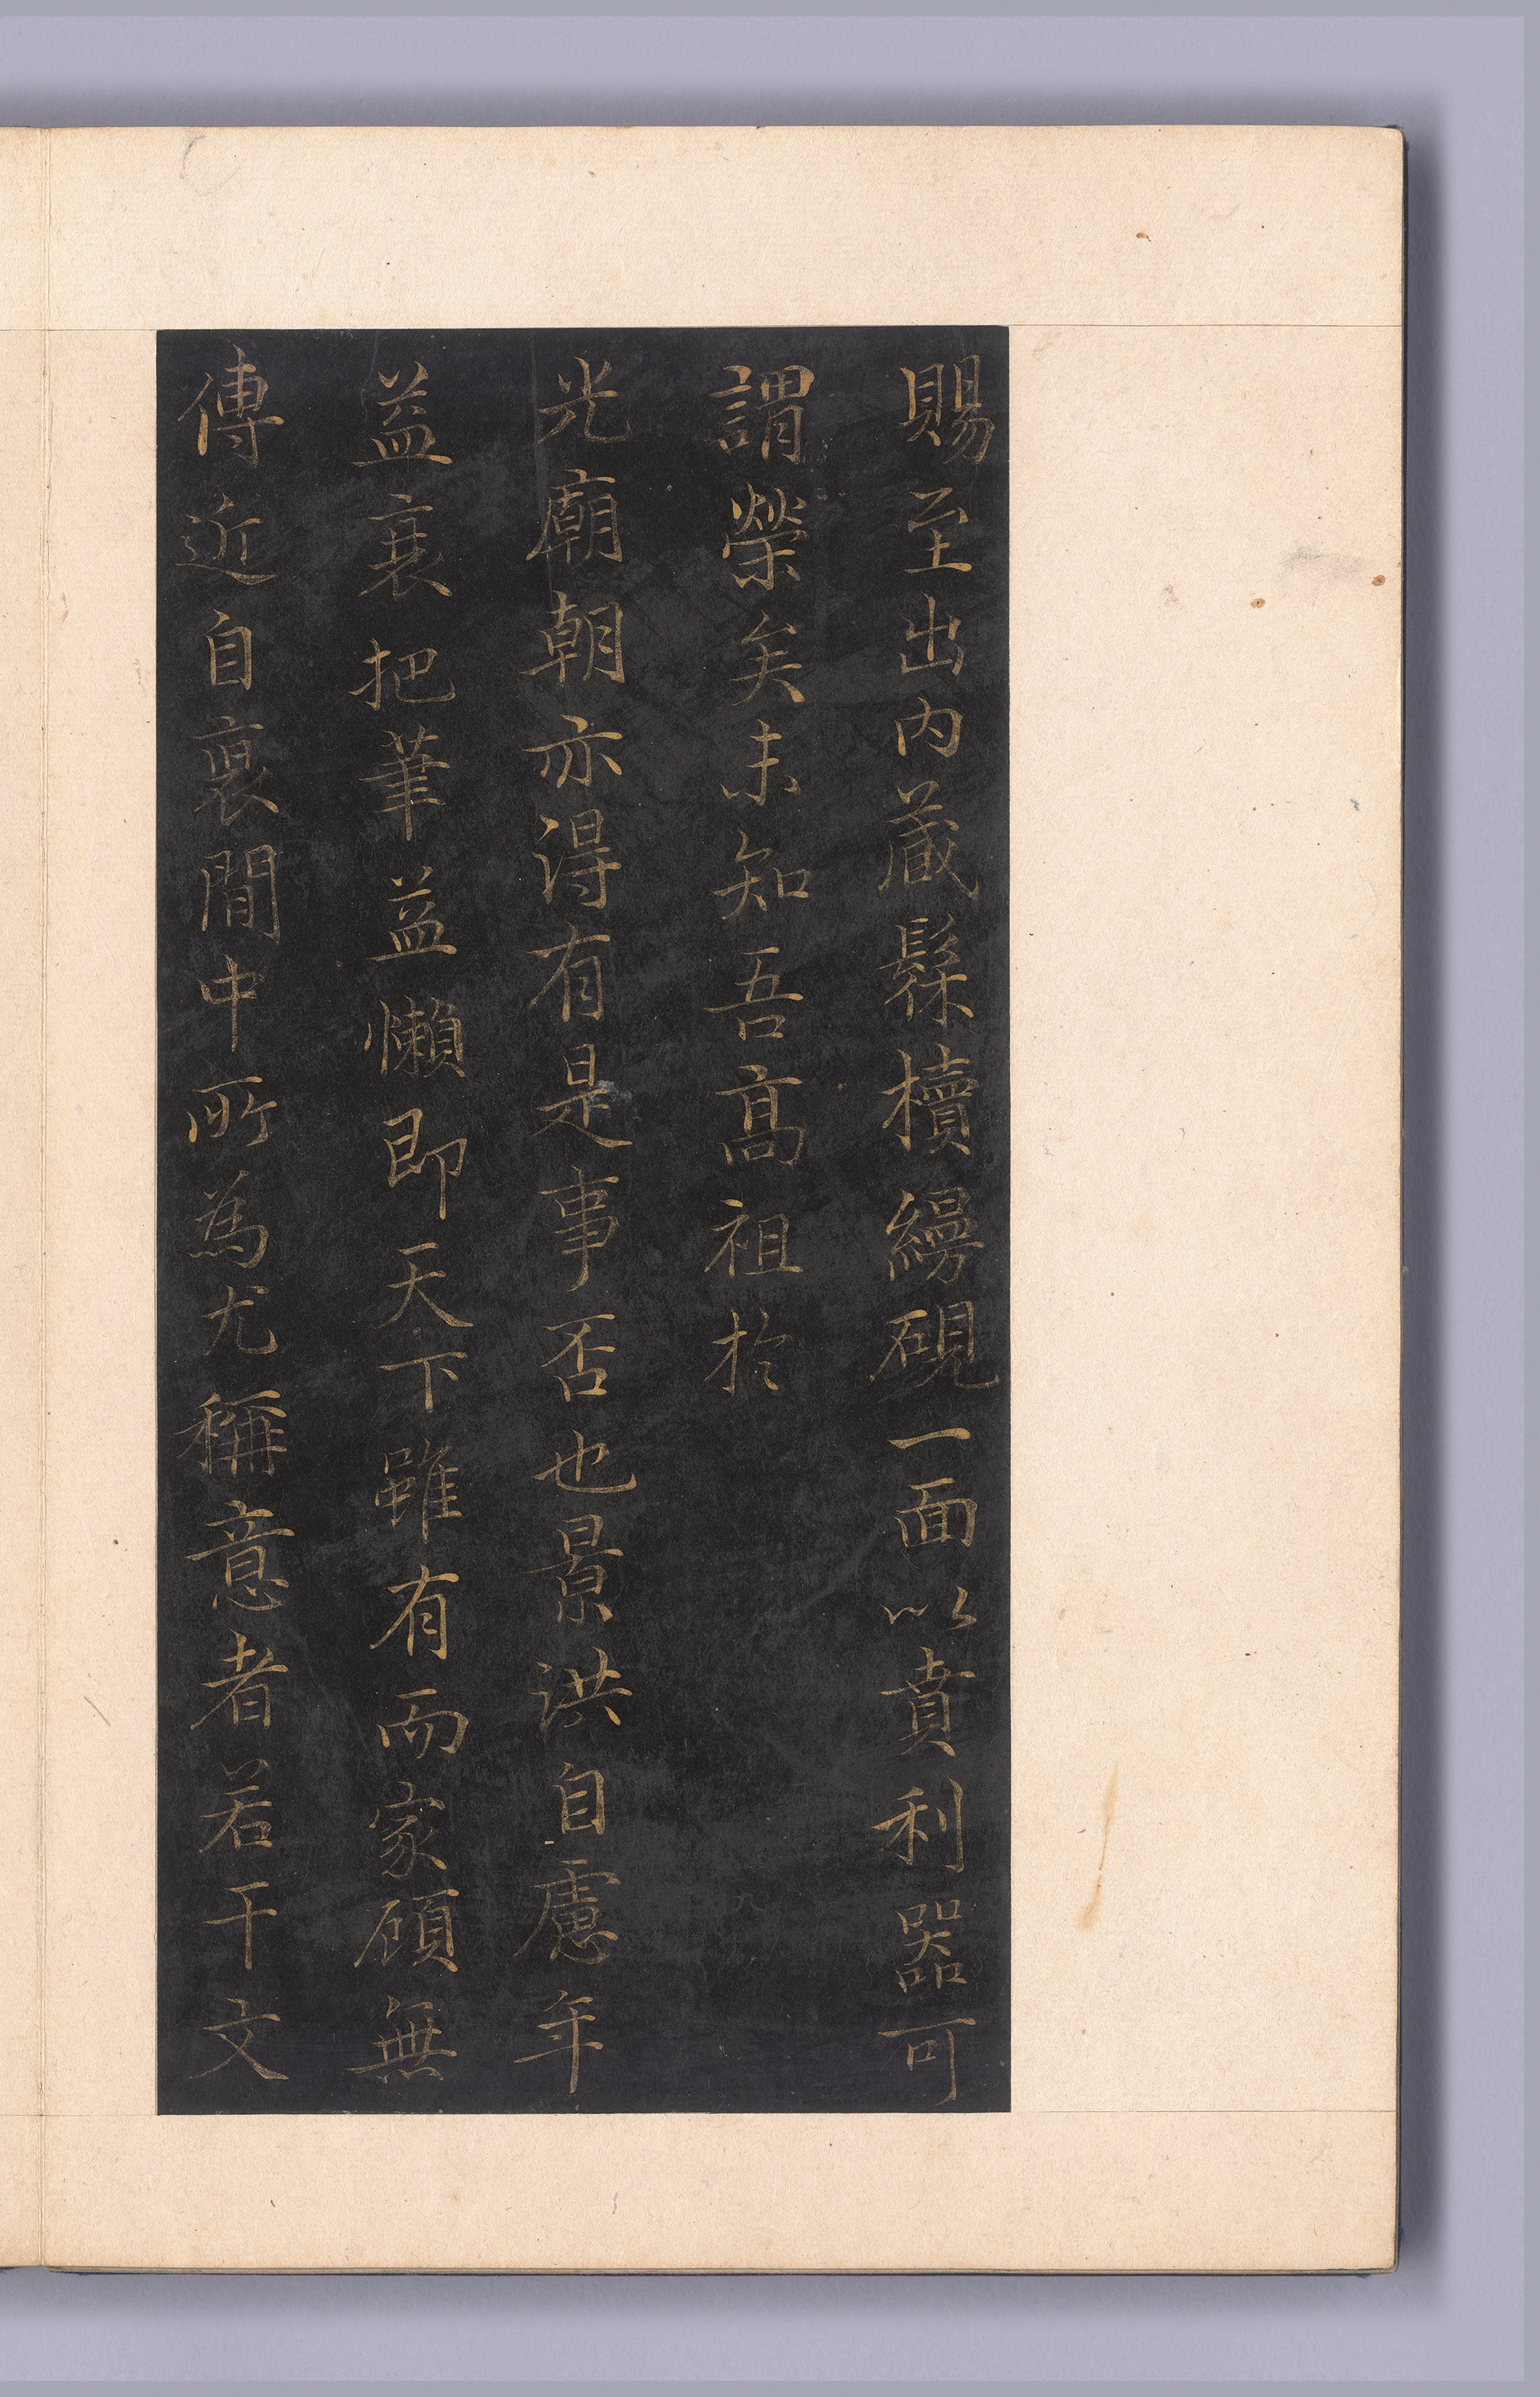 賜至出内藏髹櫝繅硯一面以賁利器可
謂榮矣未知吾髙祖於
光廟朝亦得有是事否也景洪自慮年
益衰把筆益懶即天下雖有而家顧無
傳近自裒閒中所為尤稱意者若干文